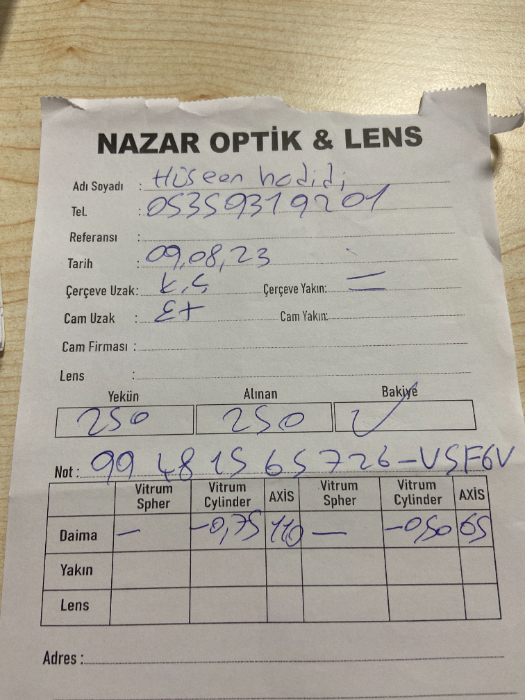 NAZAR OPTİK & LENS
Adı Soyadı : Hüseen hadidi
Tel. : 05359319201
Referansı :
Tarih : 09,08,23
Çerçeve Uzak: K.Ç Çerçeve Yakın: =
Cam Uzak : Ɛ+ Cam Yakın:
Cam Firması :
Lens :
Yekün Alınan Bakiye
250 250 ✓
Not : 99 48 15 65 726-VSF6V
Vitrum Spher Vitrum Cylinder AXİS Vitrum Spher Vitrum Cylinder AXİS
Daima — -0,75 110 — -0,50 65
Yakın
Lens
Adres :